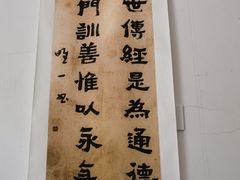 世傳經是為通德
門訓善惟以永年